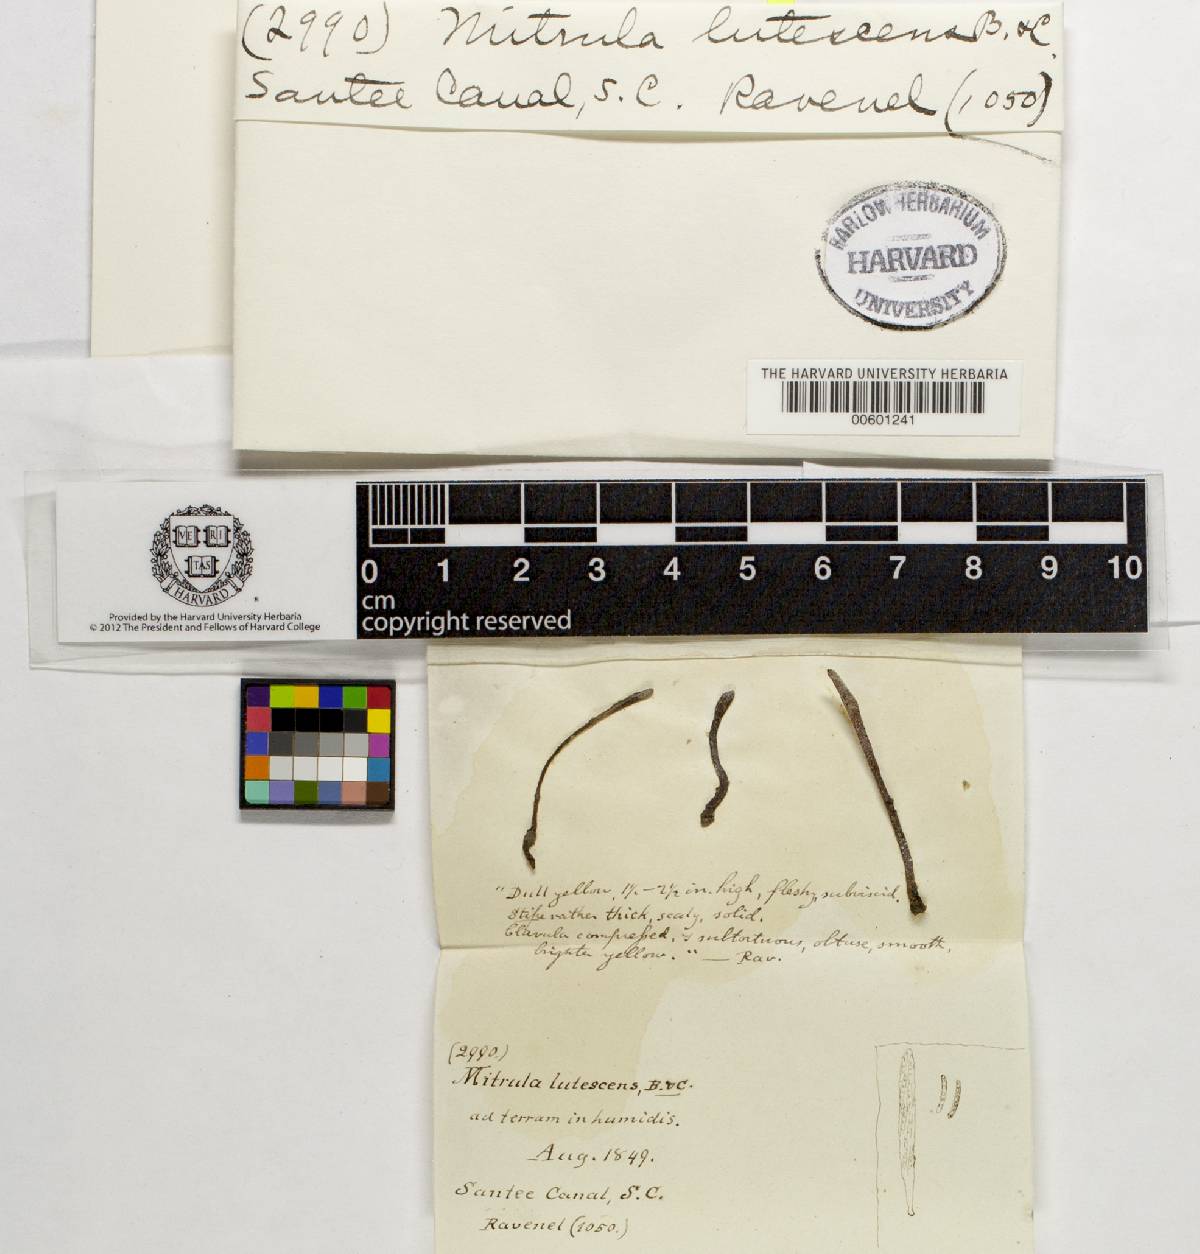 (2990) Mitrula lutescens B. & C.
Santee Canal, S.C. Ravenel (1050)
FARLOW HERBARIUM
HARVARD
UNIVERSITY
THE HARVARD UNIVERSITY HERBARIA
00601241
VE RI
TAS
HARVARD
Provided by the Harvard University Herbaria
© 2012 The President and Fellows of Harvard College
0 1 2 3 4 5 6 7 8 9 10
cm
copyright reserved
"Dull yellow, 1½–2½ in. high, fleshy, subviscid.
Stipe rather thick, scaly, solid.
Clavula compressed, & subtortuous, obtuse, smooth,
brighter yellow." — Rav.
(2990.)
Mitrula lutescens, B. & C.
ad terram in humidis.
Aug. 1849.
Santee Canal, S.C.
Ravenel (1050.)